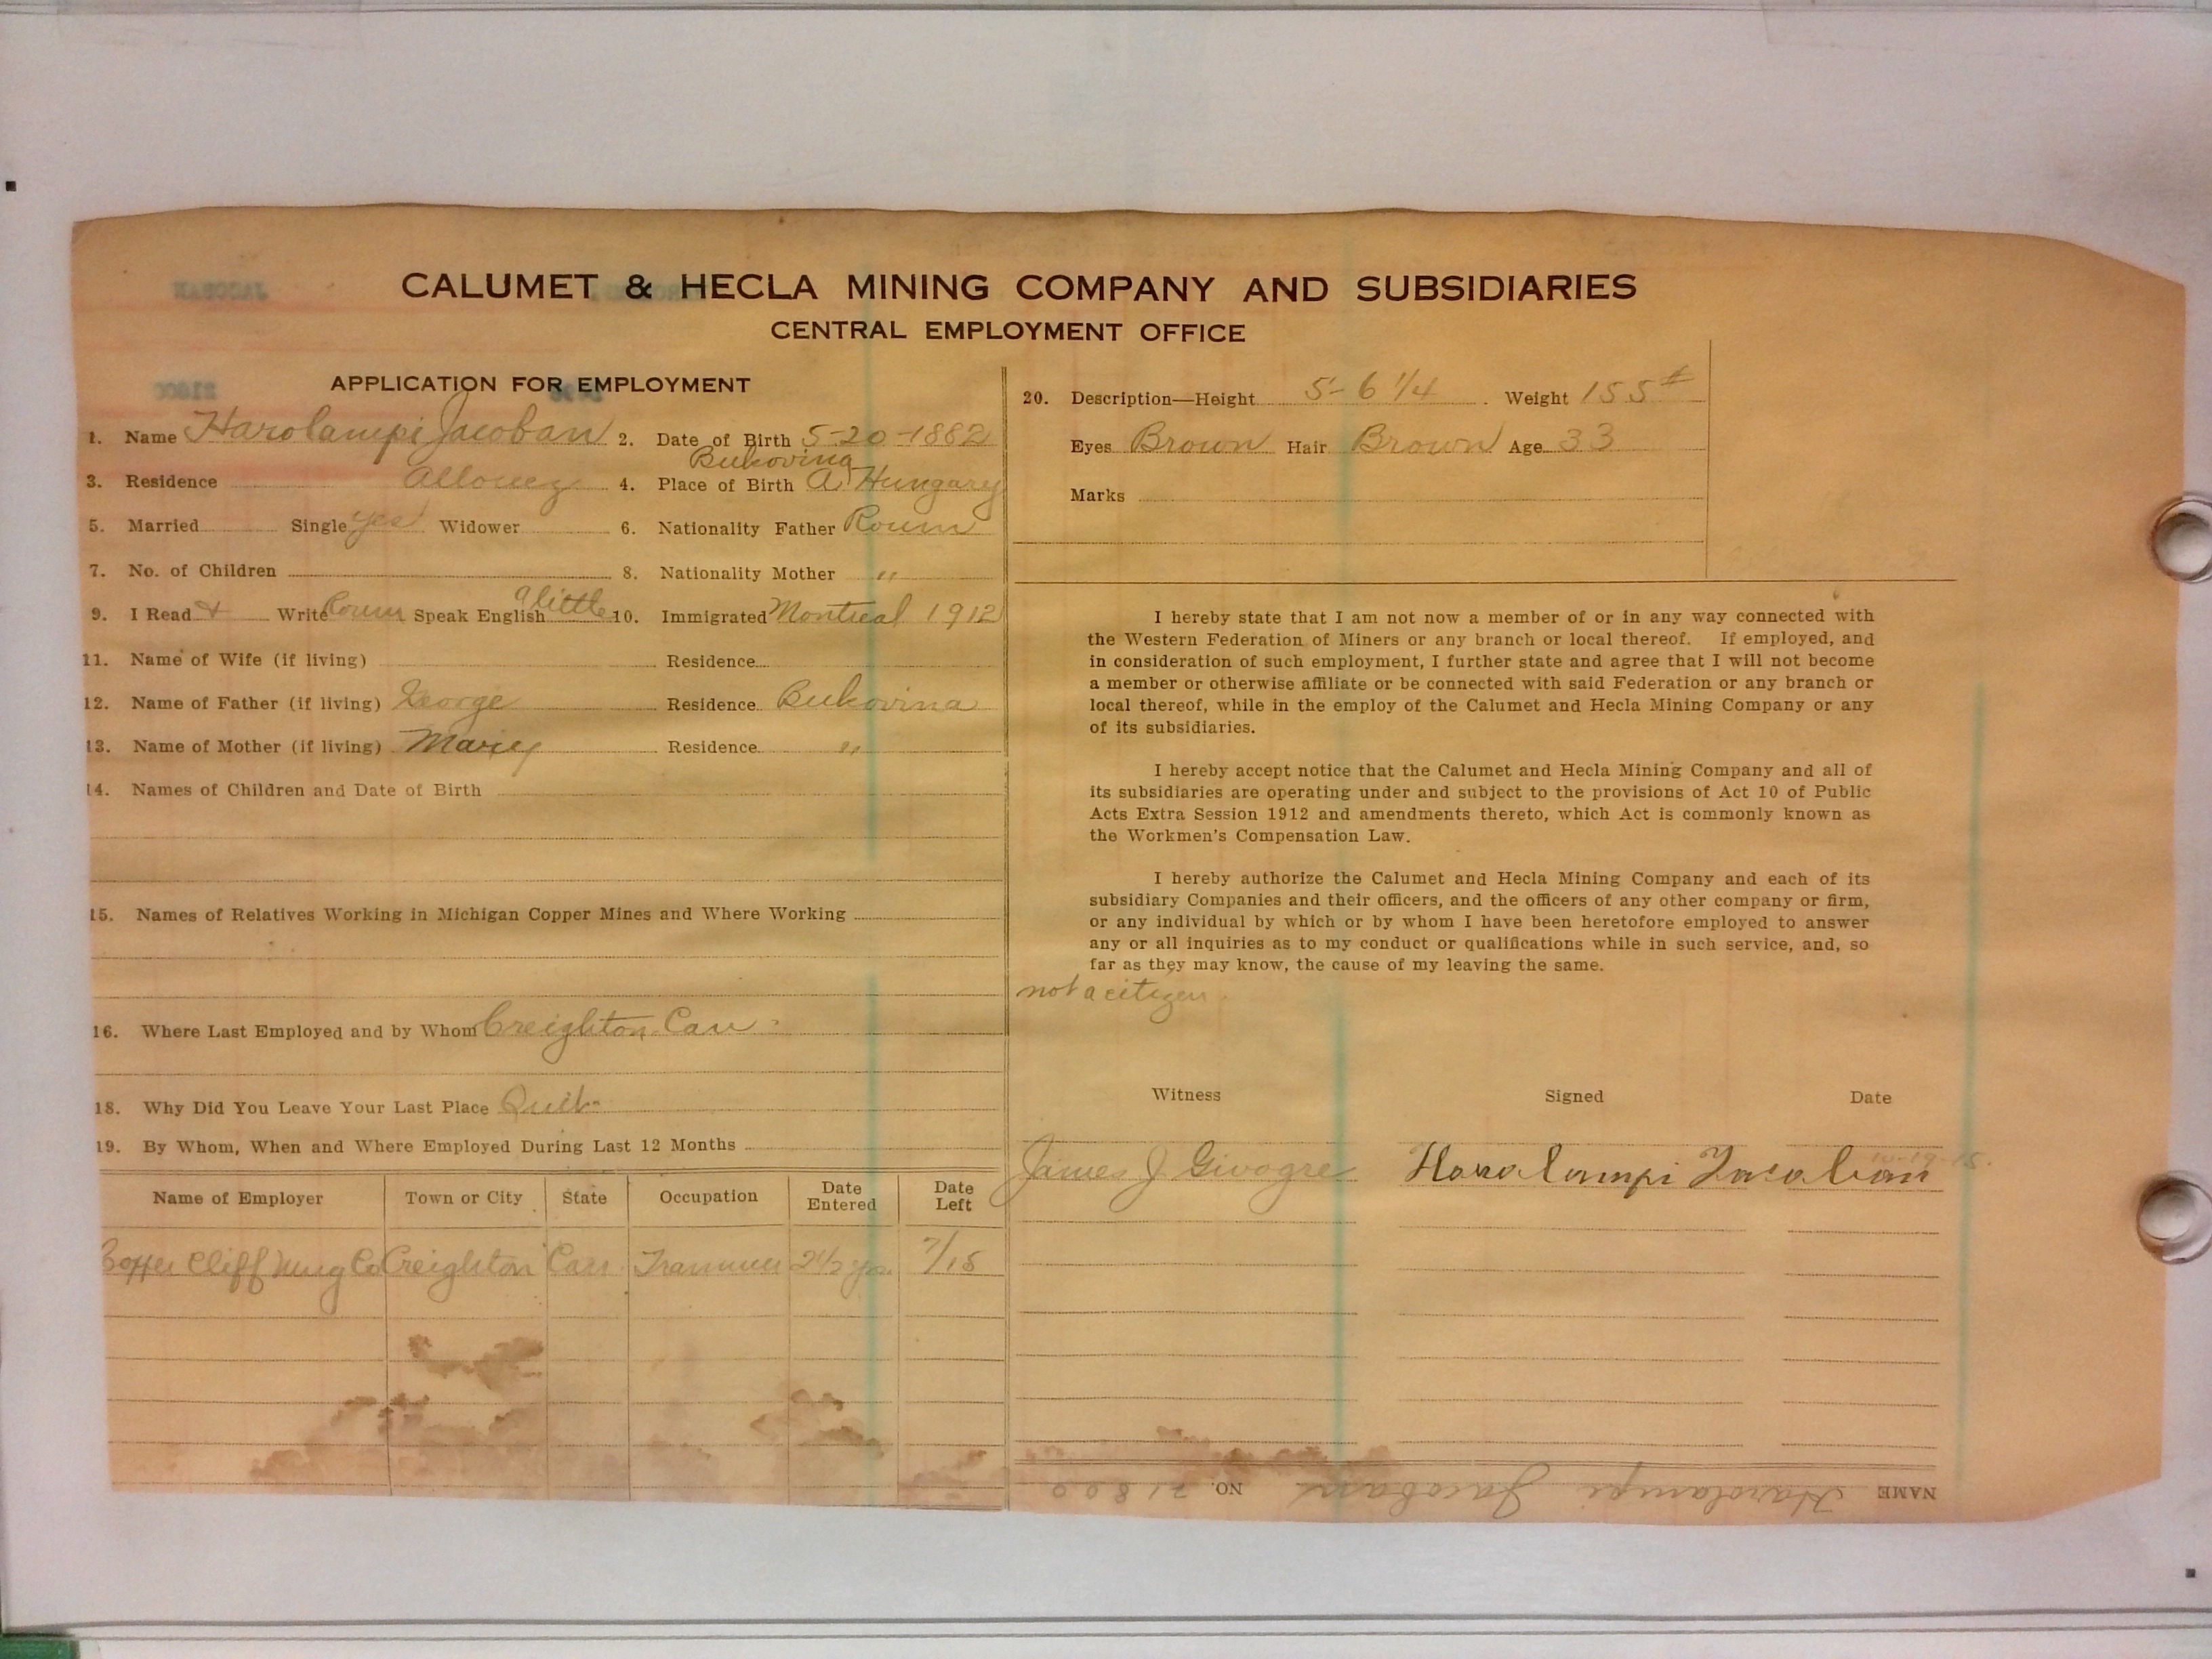 CALUMET & HECLA MINING COMPANY AND SUBSIDIARIES
CENTRAL EMPLOYMENT OFFICE
APPLICATION FOR EMPLOYMENT
1. Name Harolampi Jacoban 2. Date of Birth 5-20-1882
Bukovina
3. Residence Allouez 4. Place of Birth A. Hungary
5. Married Single yes Widower 6. Nationality Father Roum
7. No. of Children 8. Nationality Mother "
9. I Read & Write Roum Speak English a little 10. Immigrated Montreal 1912
11. Name of Wife (if living) Residence
12. Name of Father (if living) George Residence Bukovina
13. Name of Mother (if living) Mary Residence "
14. Names of Children and Date of Birth
15. Names of Relatives Working in Michigan Copper Mines and Where Working
16. Where Last Employed and by Whom Creighton Can
18. Why Did You Leave Your Last Place Quit
19. By Whom, When and Where Employed During Last 12 Months
Name of Employer Town or City State Occupation Date Entered Date Left
Copper Cliff Mng Co Creighton Can Trammer 2 1/2 yrs. 7/15
20. Description—Height 5-6 1/4 Weight 155#
Eyes Brown Hair Brown Age 33
Marks
I hereby state that I am not now a member of or in any way connected with
the Western Federation of Miners or any branch or local thereof. If employed, and
in consideration of such employment, I further state and agree that I will not become
a member or otherwise affiliate or be connected with said Federation or any branch or
local thereof, while in the employ of the Calumet and Hecla Mining Company or any
of its subsidiaries.
I hereby accept notice that the Calumet and Hecla Mining Company and all of
its subsidiaries are operating under and subject to the provisions of Act 10 of Public
Acts Extra Session 1912 and amendments thereto, which Act is commonly known as
the Workmen's Compensation Law.
I hereby authorize the Calumet and Hecla Mining Company and each of its
subsidiary Companies and their officers, and the officers of any other company or firm,
or any individual by which or by whom I have been heretofore employed to answer
any or all inquiries as to my conduct or qualifications while in such service, and, so
far as they may know, the cause of my leaving the same.
not a citizen
Witness Signed Date
James J Givogre Haralampi Jacoban
NAME Harolampi Jacoban NO. 21800